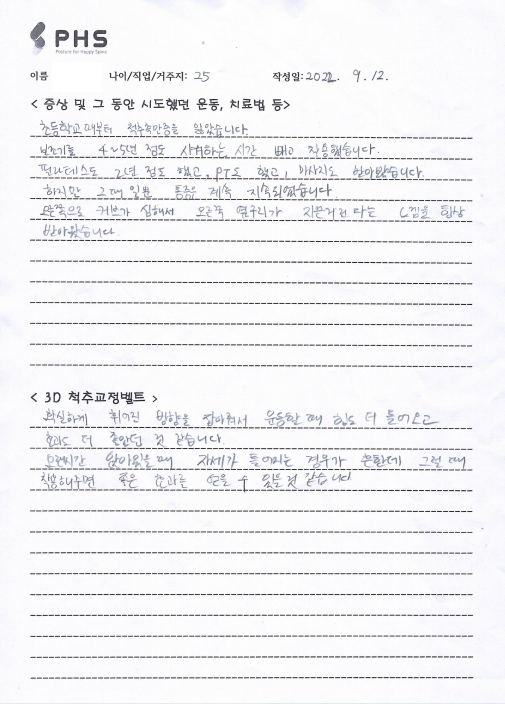 PHS
Posture for Happy Spine
이름 나이/직업/거주지: 25 작성일: 2022. 9. 12.
< 증상 및 그 동안 시도했던 운동, 치료법 등>
초등학교 때부터 척추측만증을 앓았습니다
보조기를 4~5년 정도 샤워하는 시간 빼고 착용했습니다.
필라테스도 2년 정도 했고, PT도 했고, 마사지도 받아봤습니다.
하지만 그때 일뿐 통증은 계속 지속되었습니다
오른쪽으로 커브가 심해서 오른쪽 옆구리가 느낌을 항상
받아왔습니다.
< 3D 척추교정벨트 >
확실하게 휘어진 방향을 잡아줘서 운동할 때 힘도 더 들어오고
효과도 더 좋았던 것 같습니다.
오랜시간 앉아있을 때 자세가 틀어지는 경우가 은한데 그럴 때
착용해주면 좋은 효과를 얻을 수 있을 것 같습니다